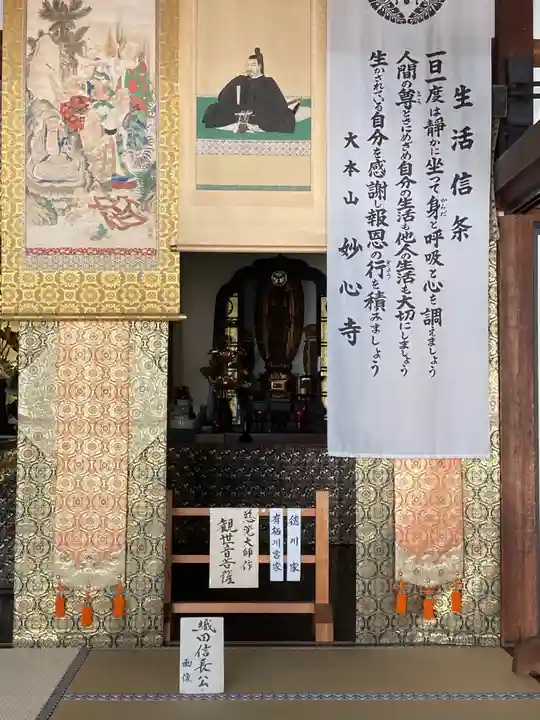 生活信条
一日一度は静かに坐って身と呼吸と心を調えましょう
人間の尊さにめざめ自分の生活も他人の生活も大切にしましょう
生かされている自分を感謝し報恩の行を積みましょう
大本山 妙心寺
徳川家
有栖川宮家
慈覚大師作
観世音菩薩
織田信長公
画像